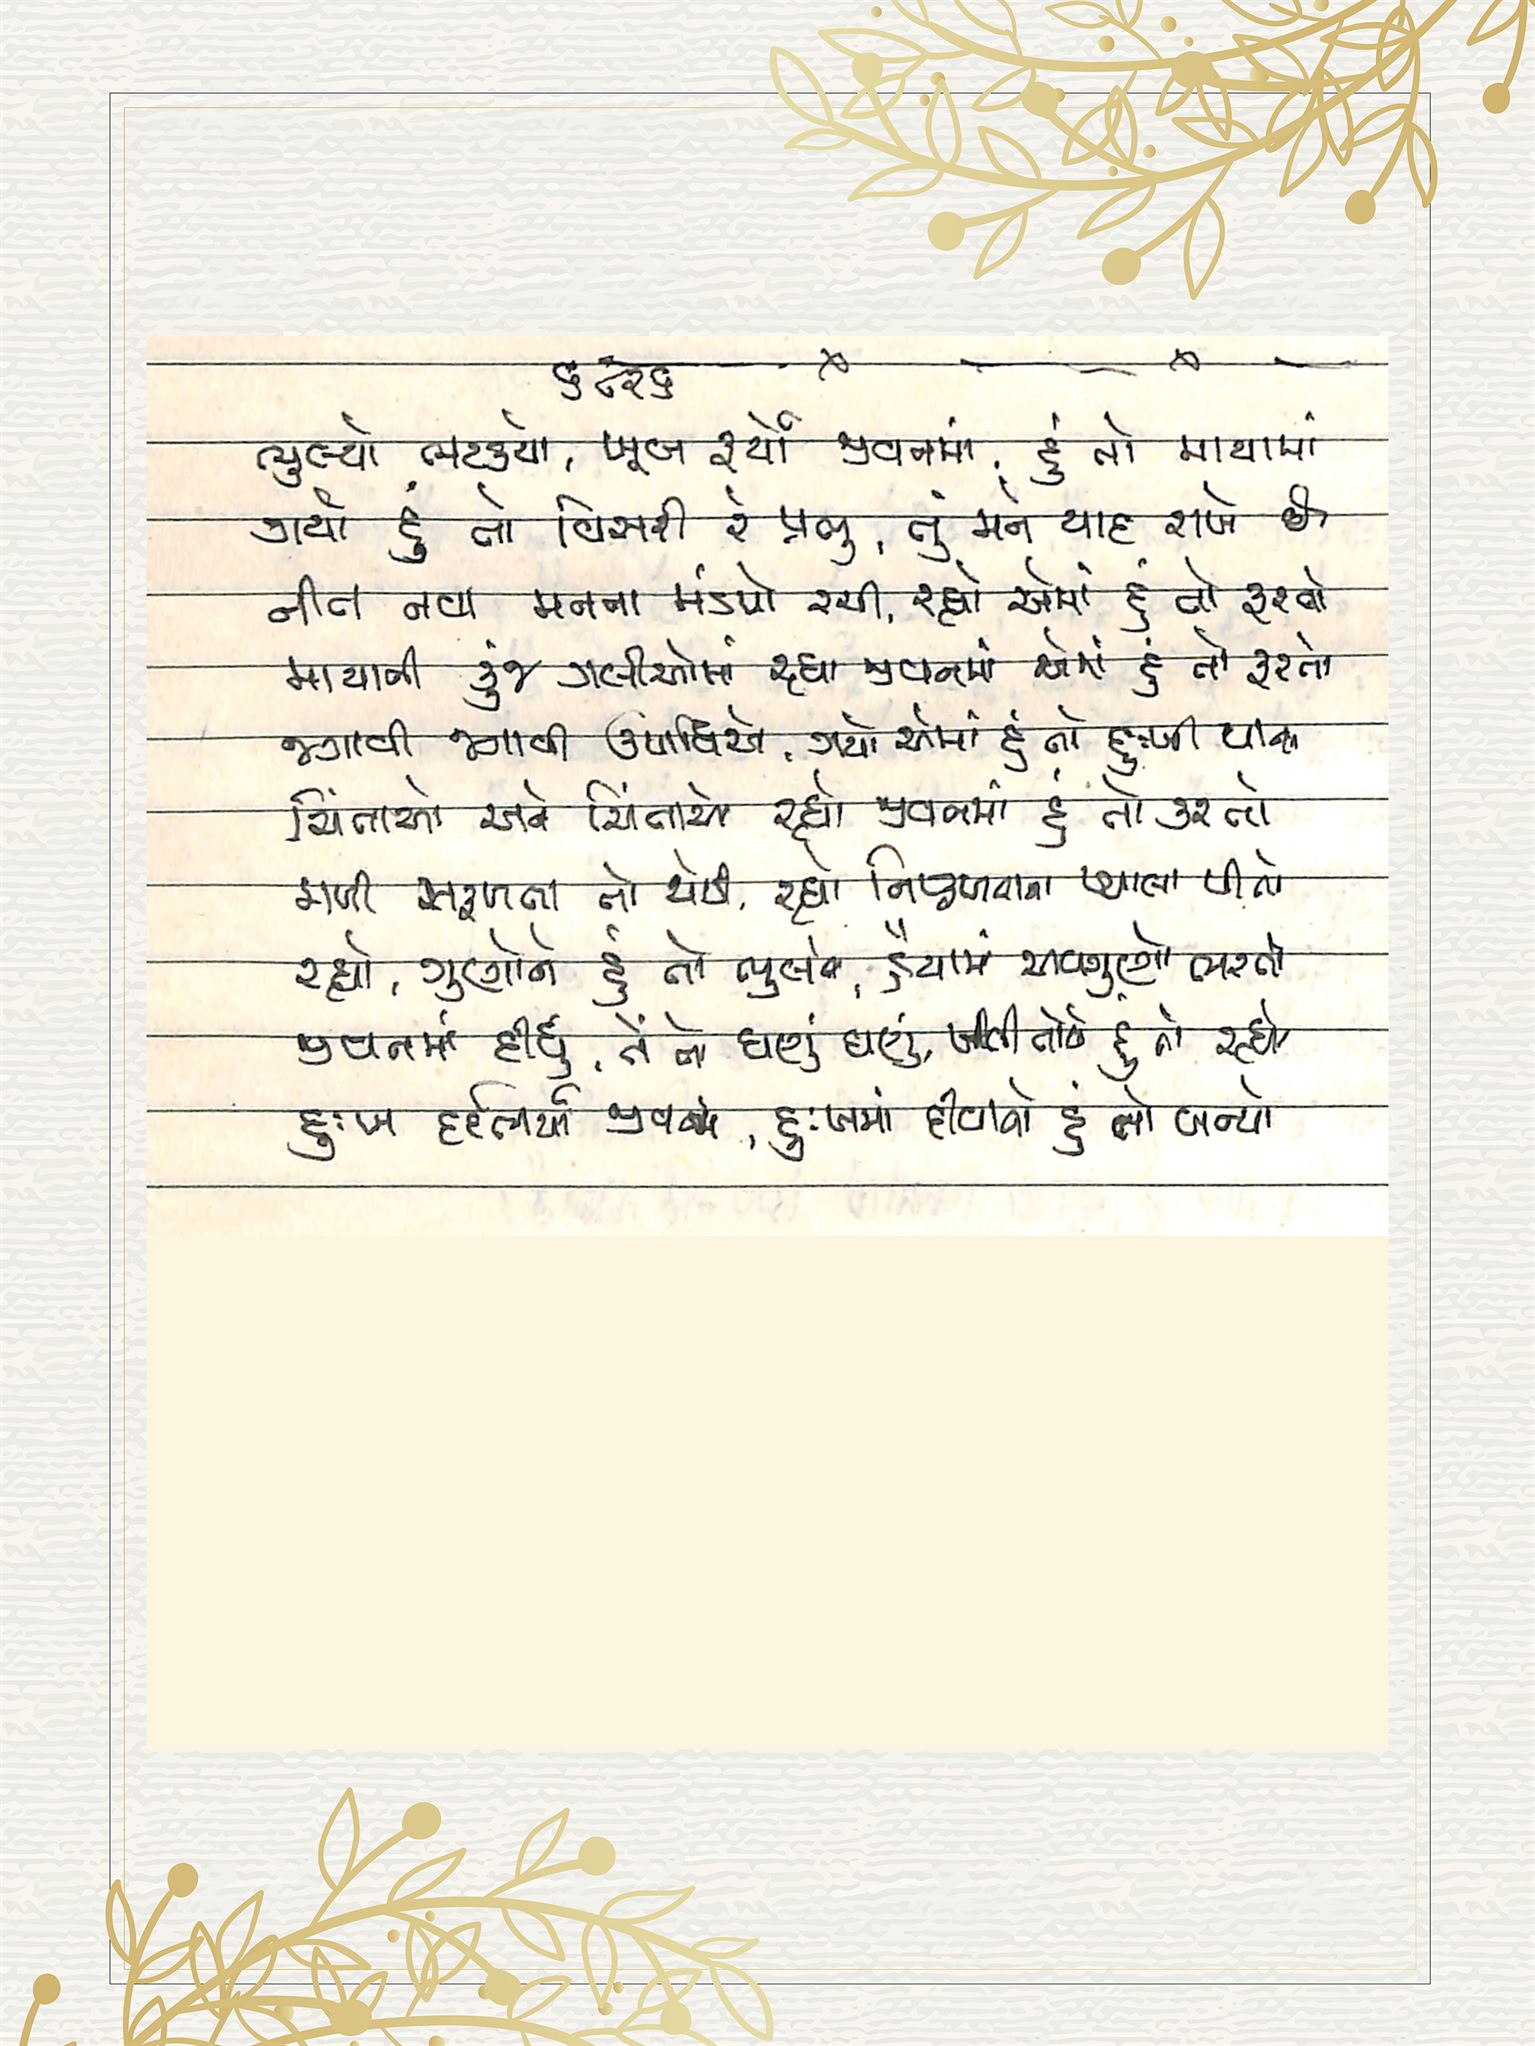 ભુલ્યો ભટક્યો, ખૂબ ફર્યો જીવનમાં, હું તો માયામાં
ગયો હું તો વિસરી રે પ્રભુ, તું મને યાદ રાખજે
નીત નવા મનના મંડપો રચી, રહ્યો એમાં હું તો ફરતો
માયાની કુંજ ગલીઓમાં રહ્યા જીવનમાં એમાં હું તો ફરતો
જગાવી જગાવી ઉપાધિઓ, ગયો એમાં હું તો દુઃખી થાતો
ચિંતાઓ અને ચિંતાઓ રહ્યો જીવનમાં હું તો કરતો
મળી સફળતા તો થોડી, રહ્યો નિષ્ફળતાના પ્યાલા પીતો
રહ્યો, ગુણોને હું તો ભુલતો, હૈયામાં અવગુણો ભરતો
જીવનમાં દીધું, તેં તો ઘણું ઘણું, ખાલી તોયે હું તો રહ્યો
દુઃખ દર્દ ભર્યા જીવનમાં, દુઃખમાં દીવાનો હું તો બન્યો